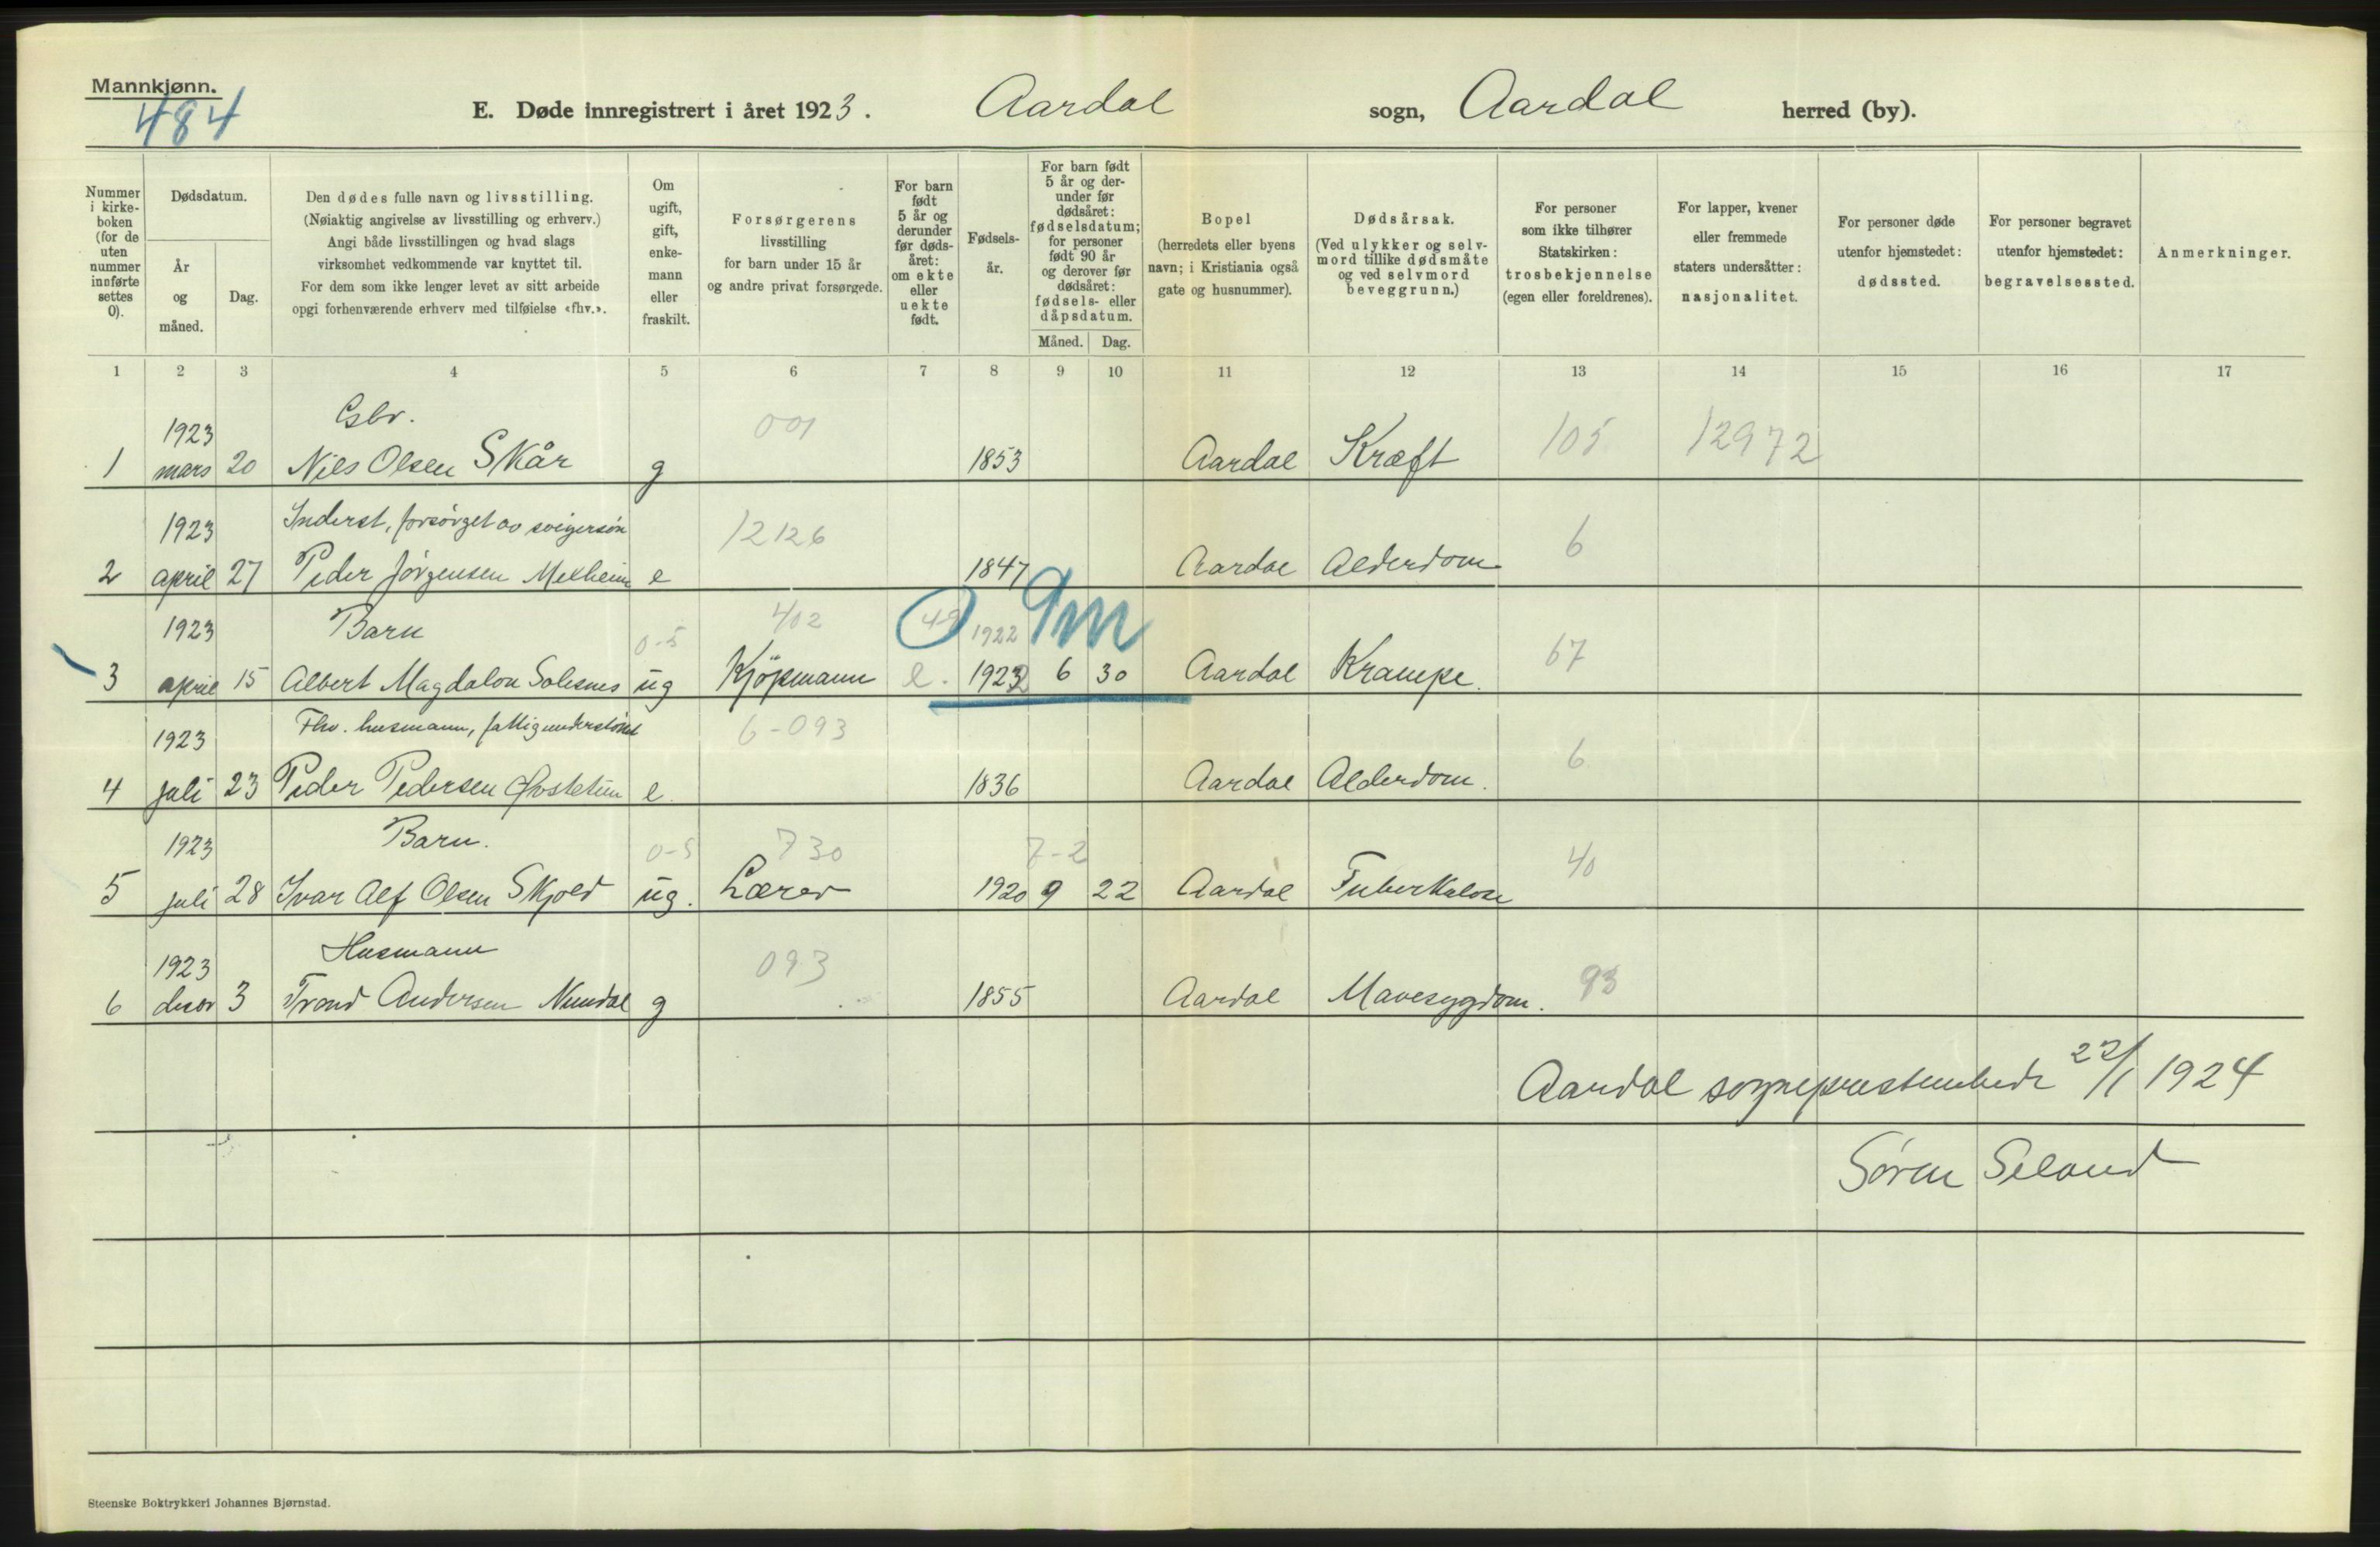 Mannkjønn.
484
E. Døde innregistrert i året 1923. Aardal sogn, Aardal herred (by).
Nummer i kirke-boken (for de uten nummer innførte settes 0).
Dødsdatum.
År og måned.
Dag.
Den dødes fulle navn og livsstilling.
(Nøiaktig angivelse av livsstilling og erhverv.)
Angi både livsstillingen og hvad slags
virksomhet vedkommende var knyttet til.
For dem som ikke lenger levet av sitt arbeide
opgi forhenværende erhverv med tilføielse «fhv.».
Om ugift, gift, enke-mann eller fraskilt.
Forsørgerens
livsstilling
for barn under 15 år
og andre privat forsørgede.
For barn født 5 år og derunder før døds-året: om ekte eller uekte født.
Fødsels-år.
For barn født 5 år og der-under før dødsåret: fødselsdatum; for personer født 90 år og derover før dødsåret: fødsels- eller dåpsdatum.
Måned. Dag.
Bopel
(herredets eller byens
navn; i Kristiania også
gate og husnummer).
Dødsårsak.
(Ved ulykker og selv-
mord tillike dødsmåte
og ved selvmord
beveggrunn.)
For personer
som ikke tilhører
Statskirken:
trosbekjennelse
(egen eller foreldrenes).
For lapper, kvener
eller fremmede
staters undersåtter:
nasjonalitet.
For personer døde
utenfor hjemstedet:
dødssted.
For personer begravet
utenfor hjemstedet:
begravelsessted.
Anmerkninger.
1 2 3 4 5 6 7 8 9 10 11 12 13 14 15 16 17
1923 Gbr. 001 105 12972
1 mars 20 Nils Olsen Skår g 1853 Aardal Kræft
1923 Inderst, forsørget av svigersøn 12126 6
2 april 27 Peder Jørgensen Melheim e 1847 Aardal Alderdom
1923 Barn 0-5 402 49 1922 9m 67
3 april 15 Albert Magdalon Solesnes ug Kjøpmann e. 1922 6 30 Aardal Krampe.
1923 Fhv. husmann, fattigunderstøttet 6-093 6
4 juli 23 Peder Pedersen e. 1836 Aardal Alderdom.
1923 Barn. 0-5 730 7-2 40
5 juli 28 Ivar Alf Olsen Skjold ug. Lærer 1920 9 22 Aardal Tuberkulose
1923 Husmann 093 93
6 desbr 3 Trond Andersen Nundal g 1855 Aardal Mavesygdom.
Aardal sogneprestembede 22/1 1924
Søren Seland
Steenske Boktrykkeri Johannes Bjørnstad.